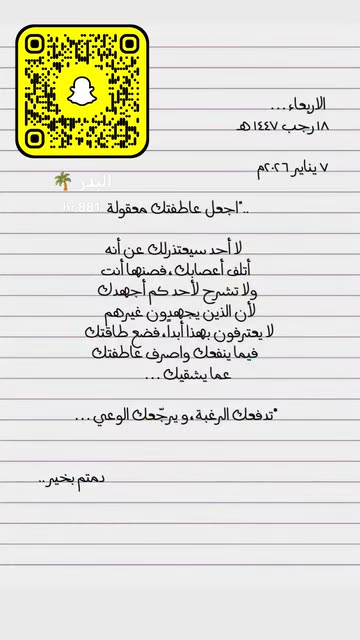 الاربعاء...
١٨ رجب ١٤٤٧ هـ
٧ يناير ٢٠٢٦م
البدر 🌴
.."اجعل عاطفتك معقولة
لا أحد سيعتذرلك عن أنه
أتلف أعصابك، فصنها أنت
ولا تشرح لأحد كم أجهدك
لأن الذين يجهدون غيرهم
لا يعترفون بهذا أبدا، فضع طاقتك
فيما ينفعك واصرف عاطفتك
عما يشقيك...
"تدفعك الرغبة، و يرجّعك الوعي...
دمتم بخير..